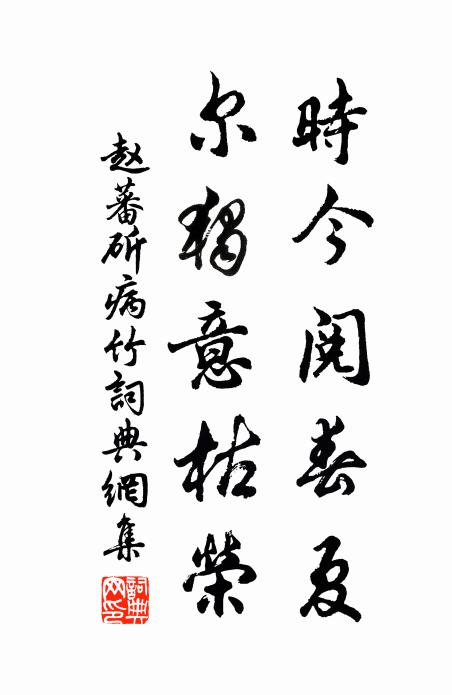 時今閱春夏
尔獨意枯榮
赵蕃斫病竹詞典網集
詞典網印